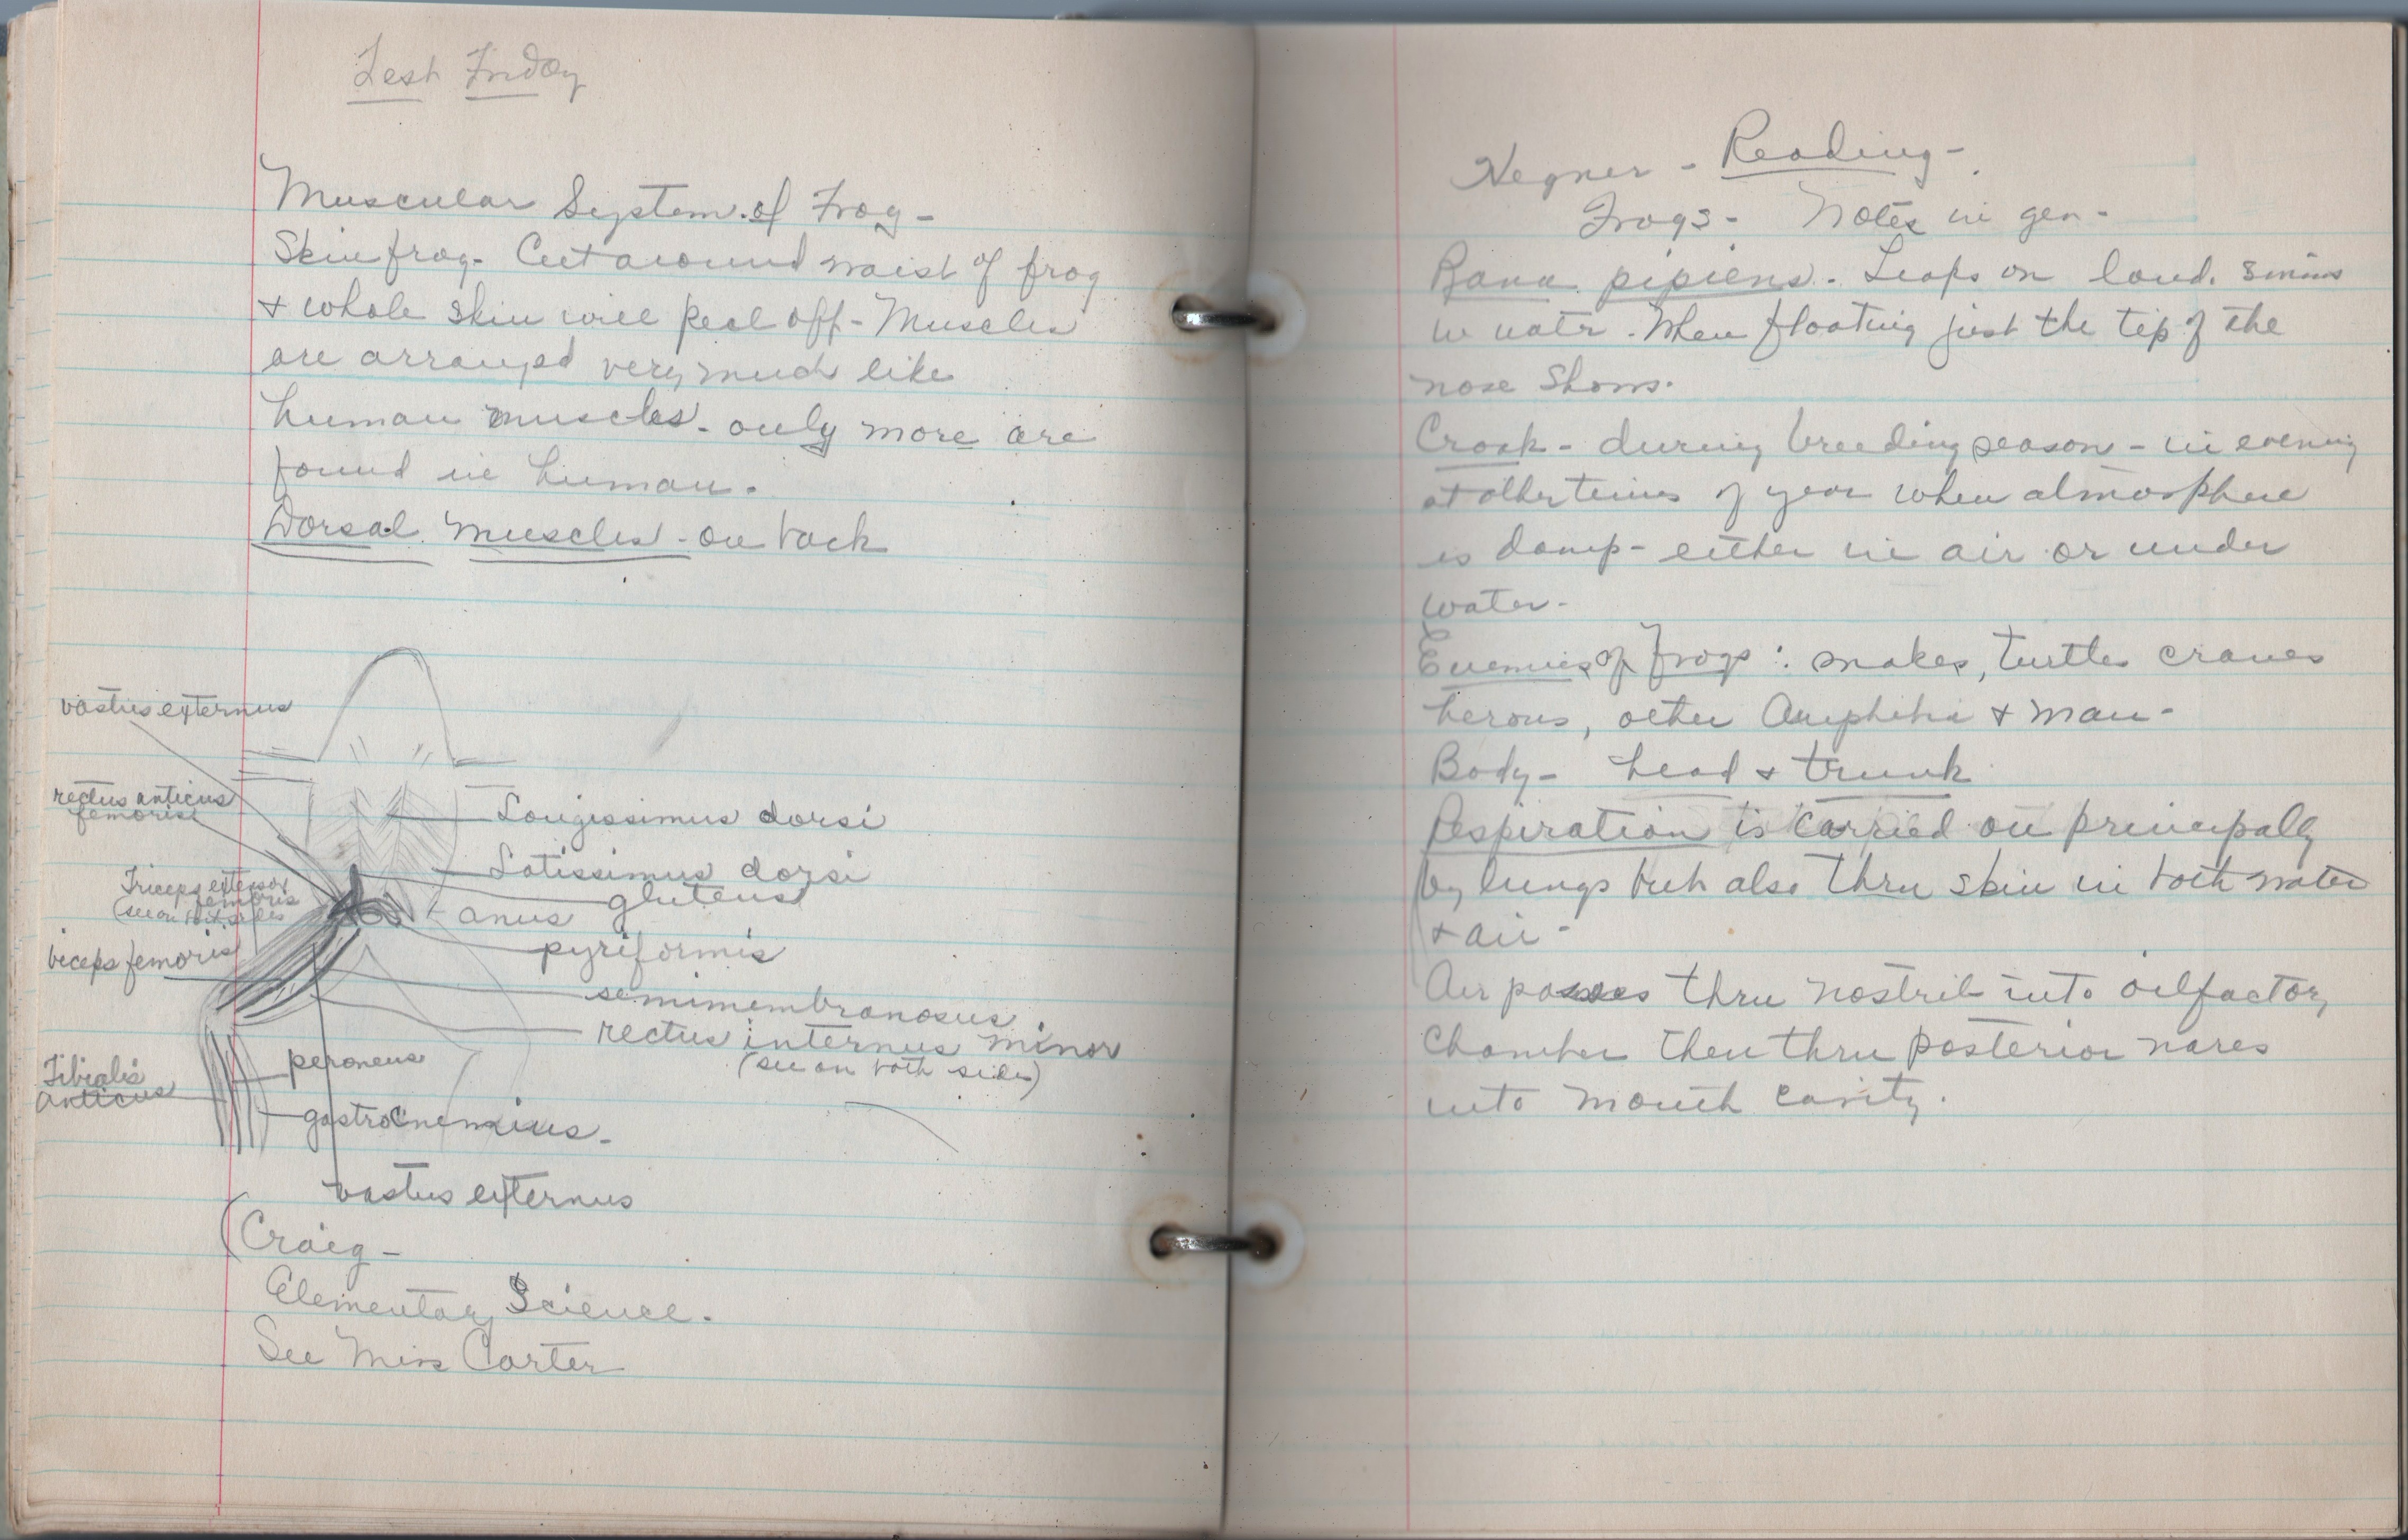 Test Friday
Muscular System of Frog -
Skin frog - Cut around waist of frog
& whole skin will peel off - Muscles
are arranged very much like
human muscles - only more are
found in human.
Dorsal muscles - on back
vastus externus
rectus anticus
femoris
Triceps extensor
femoris
(see on both sides
biceps femoris
Tibialis
anticus
Longissimus dorsi
Latissimus dorsi
gluteus
anus
pyriformis
semimembranosus
rectus internus minor
(see on both sides)
peroneus
gastrocnemius -
vastus externus
(Craig -
Elementary Science.
See Miss Carter
Hegner - Reading -
Frogs - Notes in gen -
Rana pipiens - Leaps on land. swims
in watr. When floating just the tip of the
nose shows.
Croak - during breeding season - in evening
at other times of year when atmosphere
is damp - either in air or under
water -
Enemies of frogs : snakes, turtles cranes
herons, other Amphibia & man -
Body - head & trunk
Respiration is carried on principally
by lungs but also thru skin in both water
& air -
Air passes thru nostril into oilfactory
chamber then thru posterior nares
into mouth cavity.